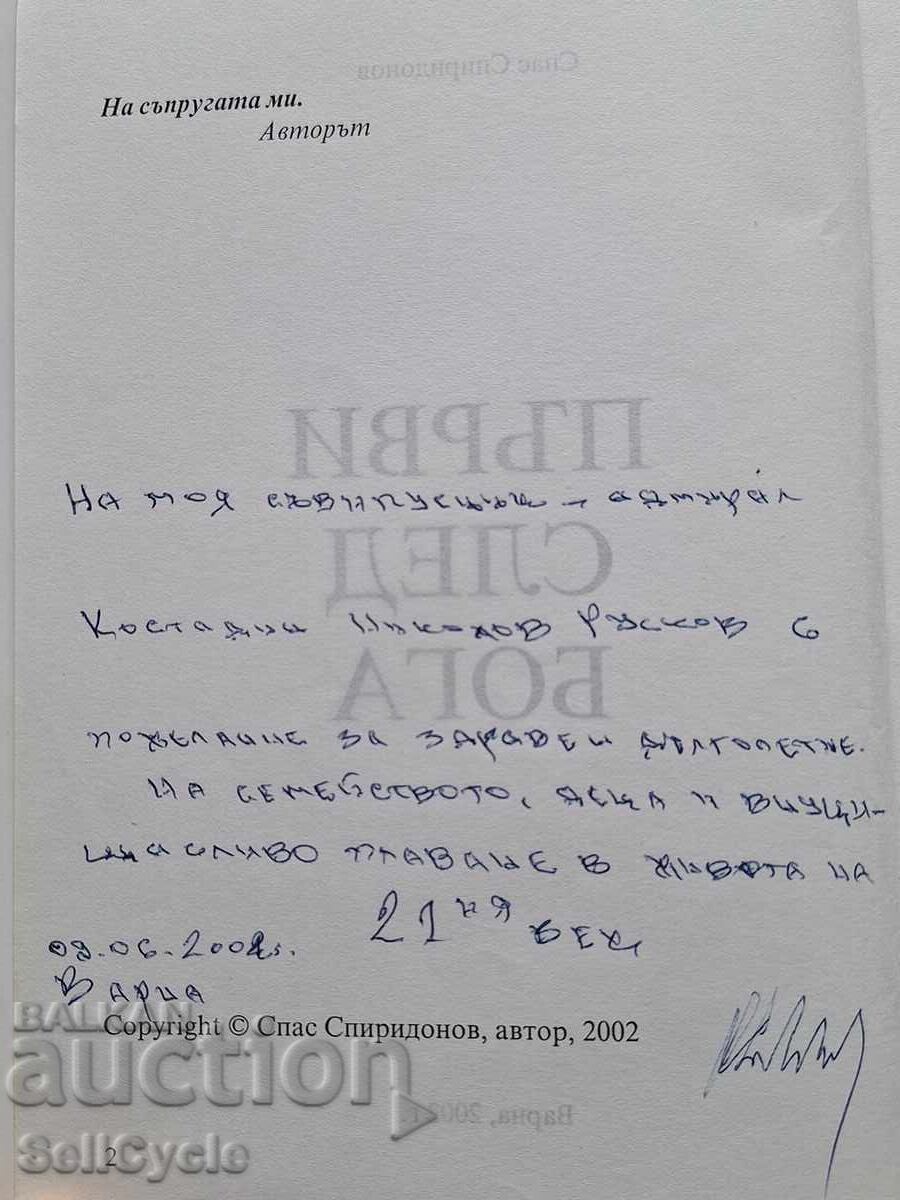 Спас Спиридонов
На съпругата ми.
Авторът
ПЪРВИ
На моя съвипускник - адмирал
СЛЕД
Костадин Николов Русков с
БОГА
пожелание за здраве и дълголетие.
На семейството, деца и внуци -
щасливо плаване в живота на
21ня век
09.06.2002г.
Варна
Copyright © Спас Спиридонов, автор, 2002
Варна, 2002 г.
2
BALKAN
auction
SellCycle